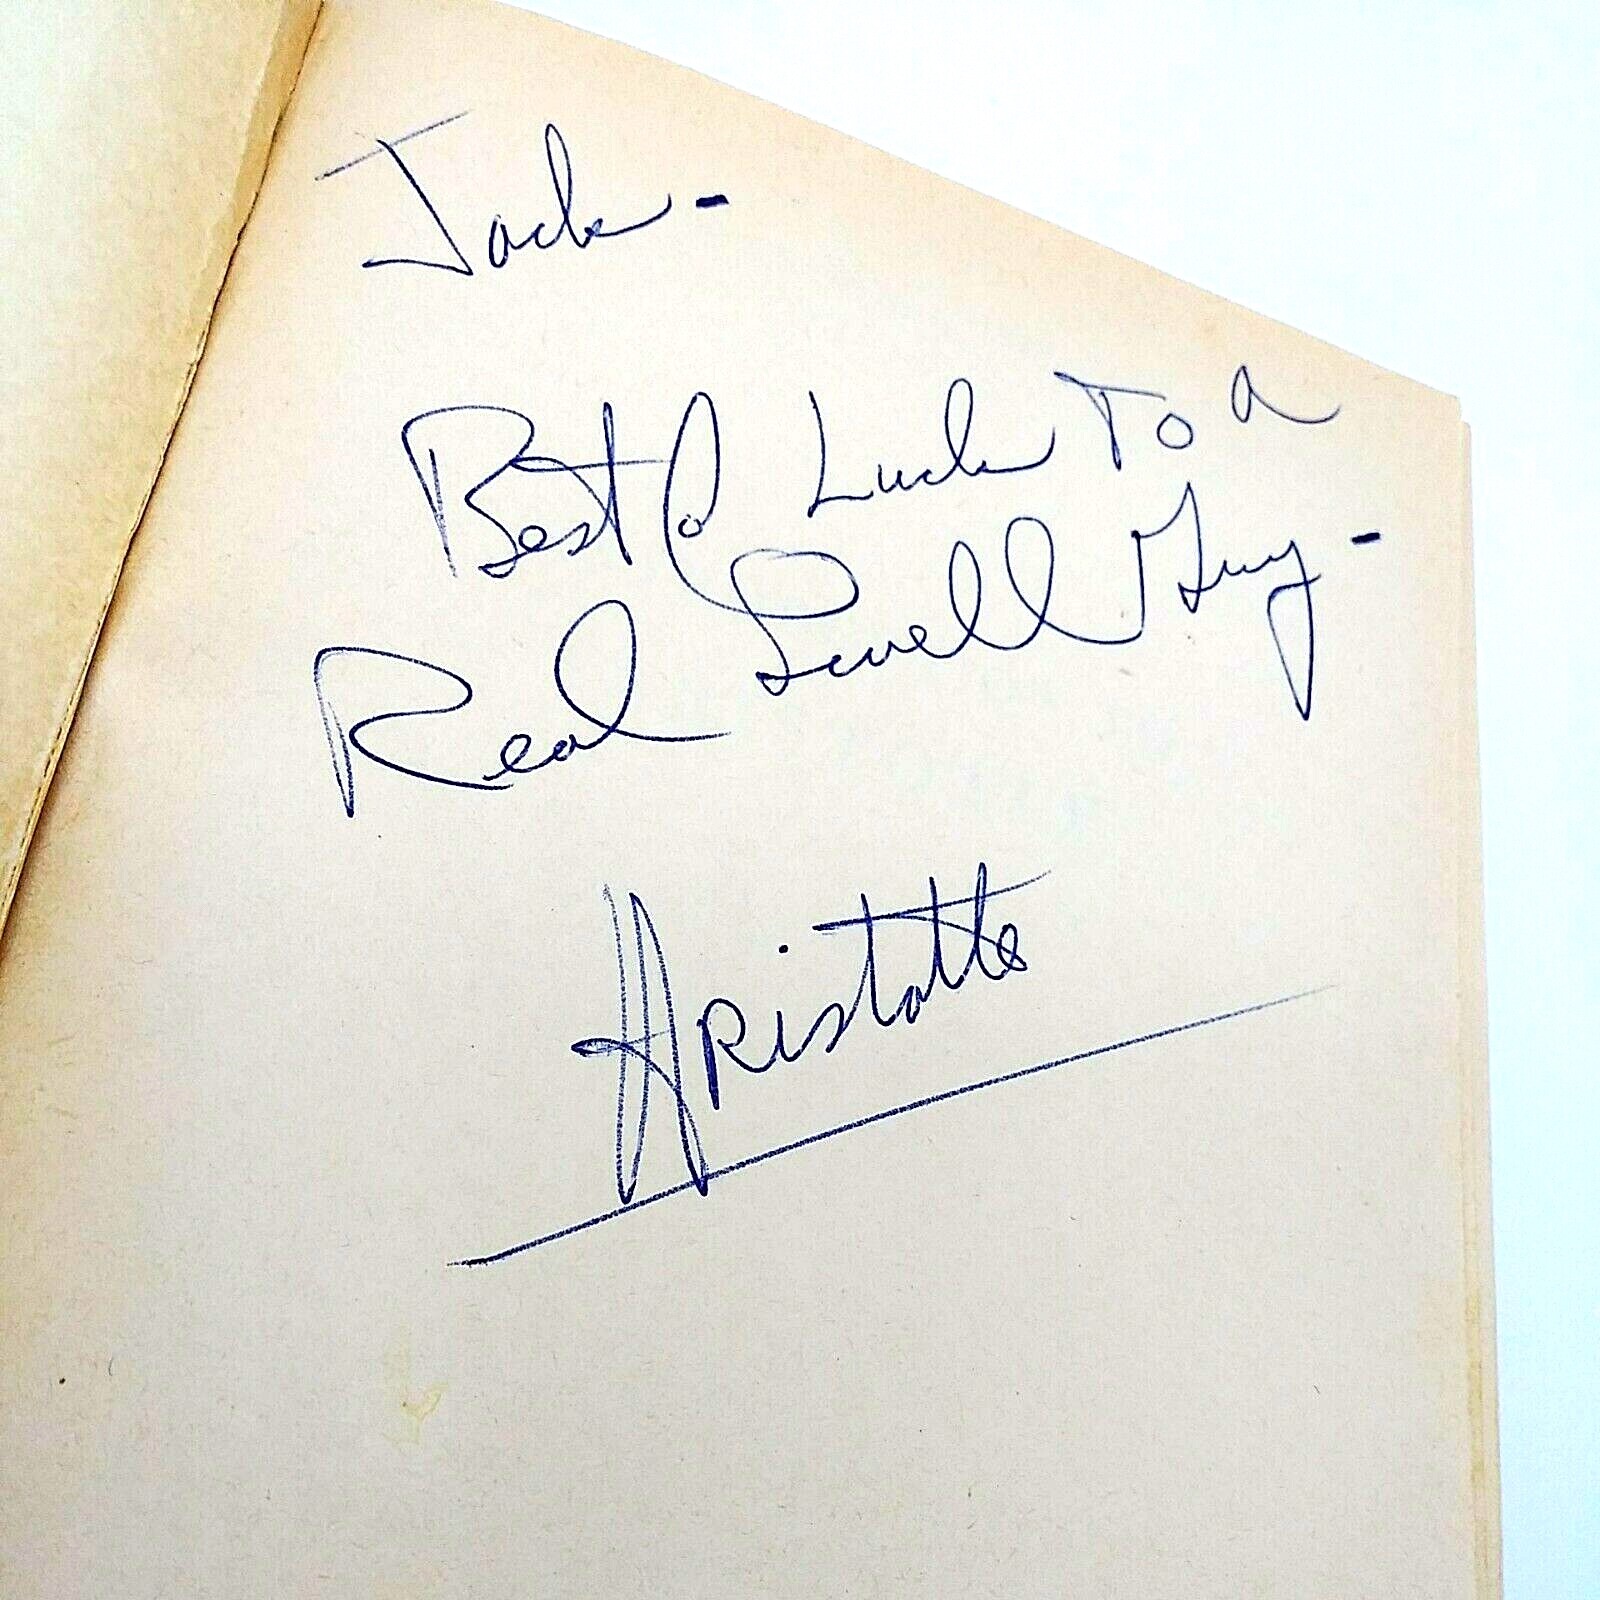 Jack -
Best of Luck To a
Real Swell Guy -
Aristotle